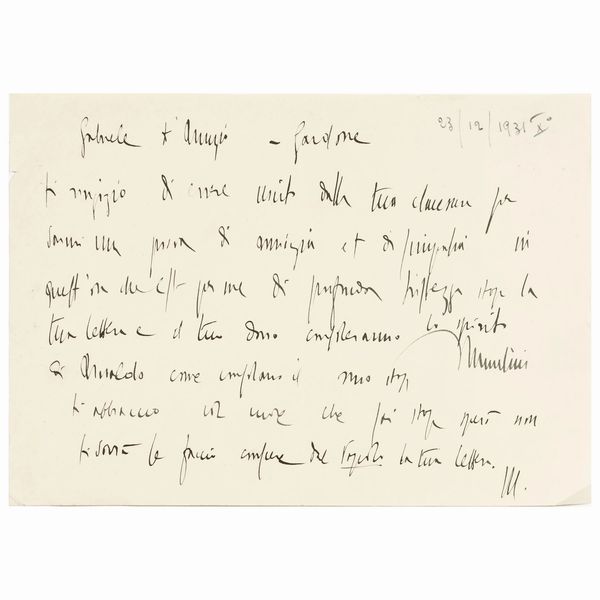 Gabriele d'Annunzio - Gardone
23/12/1931 X°
ti ringrazio di essere uscito dalla tua clausura per
darmi una prova di amicizia et di simpatia in
quest'ora che est per me di profonda tristezza stop la
tua lettera e il tuo dono consoleranno lo spirito
di Arnaldo come consolano il mio stop
Mussolini
ti abbraccio col cuore che sai stop spero non
ti dorrà se faccio compare dal Popolo la tua lettera.
M.